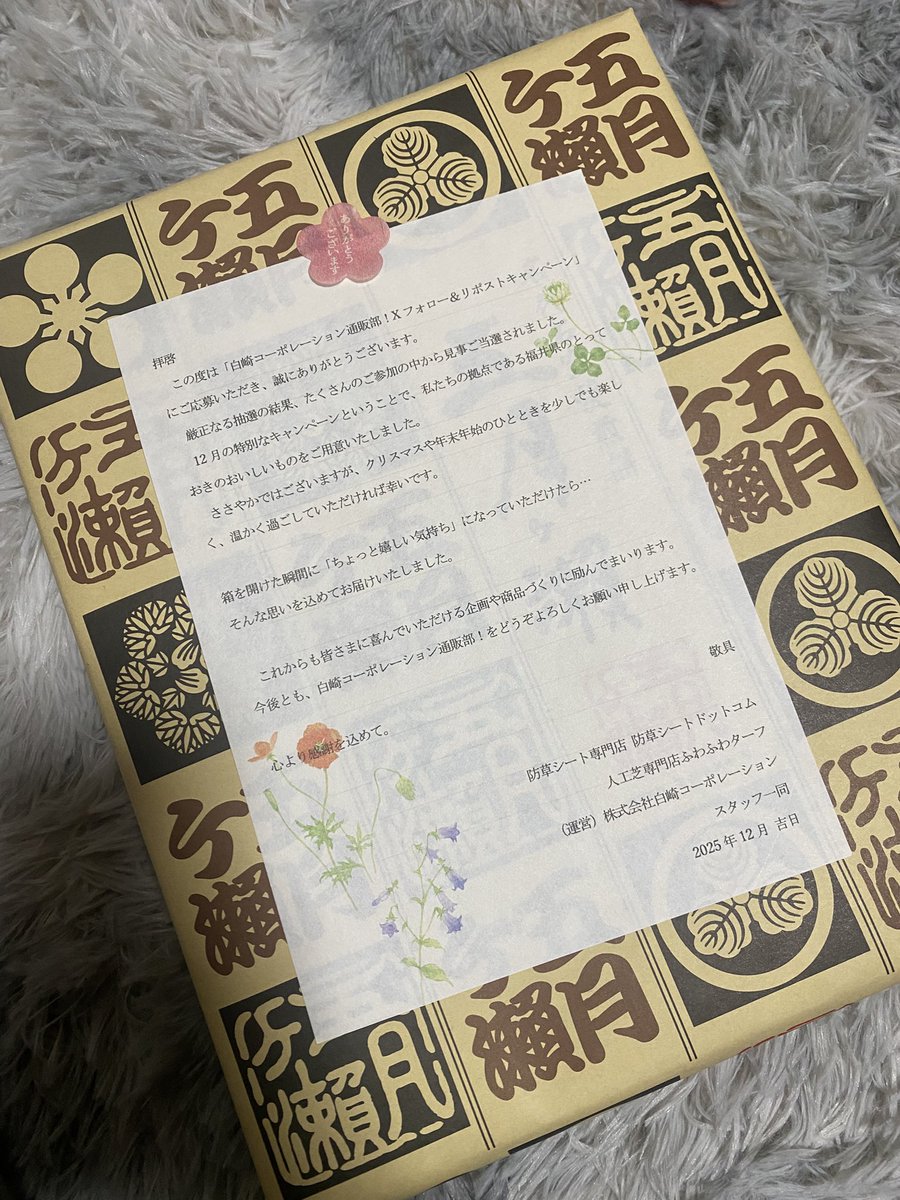 ありがとう
ございます
拝啓
この度は「白崎コーポレーション通販部！Xフォロー＆リポストキャンペーン」
にご応募いただき、誠にありがとうございます。
厳正なる抽選の結果、たくさんのご参加の中から見事ご当選されました。
12月の特別なキャンペーンということで、私たちの拠点である福井県のとって
おきのおいしいものをご用意いたしました。
ささやかではございますが、クリスマスや年末年始のひとときを少しでも楽し
く、温かく過ごしていただければ幸いです。
箱を開けた瞬間に「ちょっと嬉しい気持ち」になっていただけたら…
そんな思いを込めてお届けいたしました。
これからも皆さまに喜んでいただける企画や商品づくりに励んでまいります。
今後とも、白崎コーポレーション通販部！をどうぞよろしくお願い申し上げます。
敬具
心より感謝を込めて。
防草シート専門店 防草シートドットコム
人工芝専門店ふわふわターフ
（運営）株式会社白崎コーポレーション
スタッフ一同
2025年12月 吉日
五月
ケ瀬
五月
ケ瀬
五月
ケ瀬
五月
ケ瀬
五月
ケ瀬